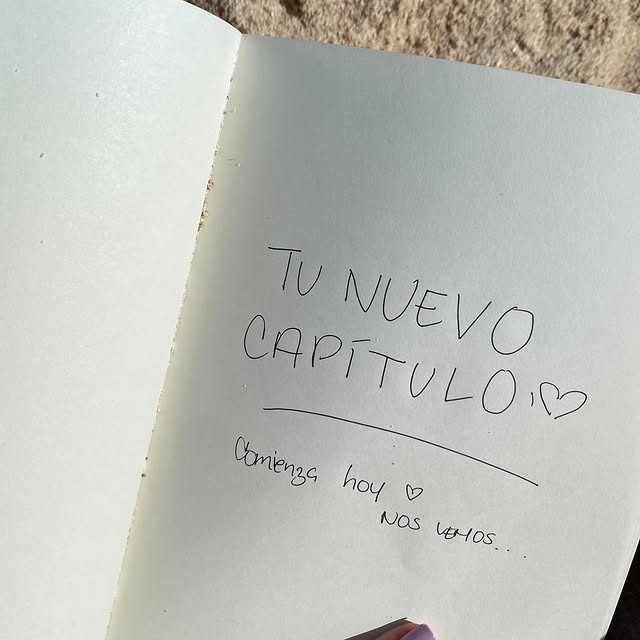 TU NUEVO
CAPÍTULO, ♡
Comienza hoy ♡
NOS VEMOS....